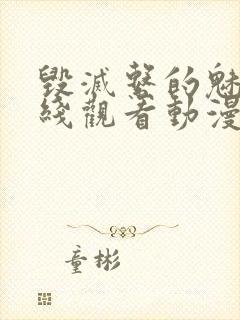 毀滅系的魅
綫觀看動漫
童彬